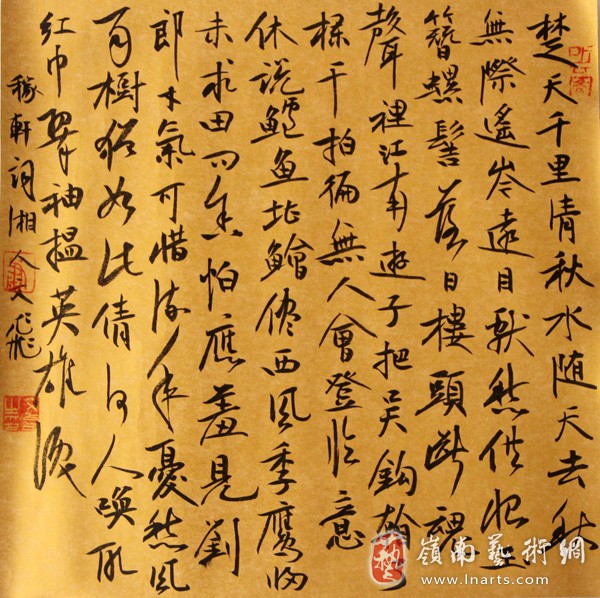 楚天千里清秋水随天去秋
無際遙岑遠目献愁供恨玉
簪螺髻落日樓頭斷鴻
聲裡江南遊子把吴鈎看了
欄干拍徧無人會登临意
休说鱸鱼堪鱠儘西风季鹰归
未求田问舍怕應羞見劉
郎才氣可惜流年憂愁风
雨樹猶如此倩何人唤取
红巾翠袖揾英雄泪
稼軒詞湘人飛
嶺南藝術網
www.lnarts.com